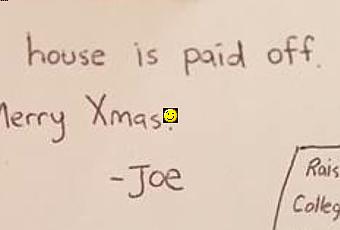 house is paid off.
Merry Xmas!
-Joe
Rais
Colleg